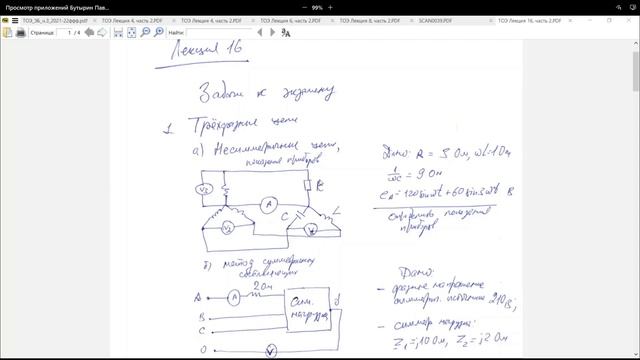 Просмотр приложений Бутырин Пав...
99%
ТОЭ_Э6_ч.3_2021-22ффф.pdf
ТОЭ Лекция 4, часть 2.PDF
ТОЭ Лекция 6, часть 2.PDF
ТОЭ Лекция 8, часть 2.PDF
SCAN0039.PDF
ТОЭ Лекция 16, часть 2.PDF
Страница: 1 / 4
Найти:
Лекция 16
Задачи к экзамену
1. Трёхфазные цепи
а) Несимметричные цепи,
показания приборов
V₂
R
A
C
L
V₁
V
Дано: R = 3 Ом, ωL=1 Ом
1/ωC = 9 Ом
e_A=120sinωt+60sin3ωt В
определить показания
приборов
б) метод симметричных
составляющих
A
A
2Ом
Сим.
нагрузка
B
C
0
V
Дано:
- фазное напряжение
симметр. источника 210 В;
- симметр нагрузка:
Z₁=j10 Ом, Z₂=j2 Ом